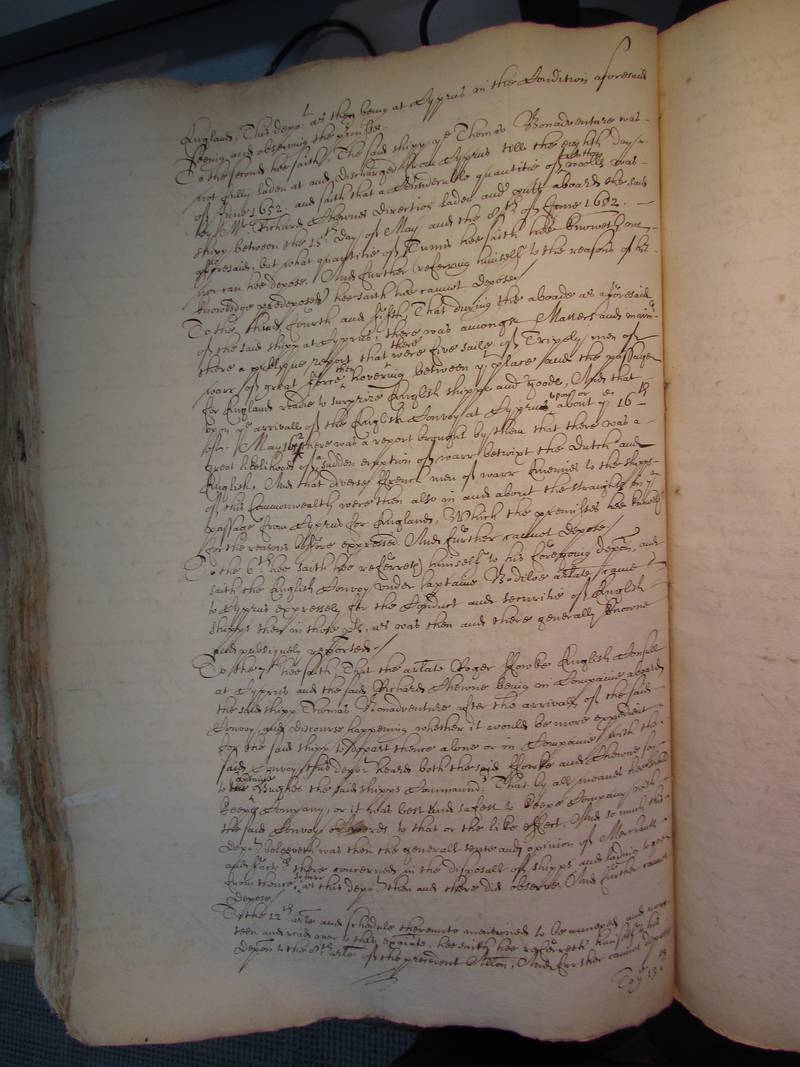 England, This depo:t as then being at Cyprus in the Condition aforesaid
seeing and observing the p:rmisses.
To the second hee saith, The said shipp ye Thomas Bonadventure was
not fully laden at and discharged from Cyprus till the eighth day
of June 1652. and saith that a Considerable quantitie of Cotton woolls was
by Mr Richard Chowne direction laden and putt aboard the said
shipp between the 15th Day of May and the 8th of June 1652.
afforesaid, but what quantitie of Tunns hee saith hee knoweth not
nor can hee depose. And further (referring himself to the reasons of his
knowledge predeposed) hee saith hee cannot depose
To the third, fourth and fifth, That during the aboade as aforesaid
of the said shipp at Cyprus, there was amongst Masters and mariners
there a publique report that there were five saile of Tripoly men of
warr of great force then hovering between yt place and the passage
for England readie to surprize English shipps and goods, And that
upon ye arrivall of the English Convoy at Cyprus upon or about ye 16th
of May 1652 there was a report brought by them that there was a
great likelihood of a sudden eruption of warr betwixt the Dutch and
English, And that divers ffrench men of warr Enemies to the shipps
of this Commonwealth were then also in and about the straights in ye
passage from Cyprus for England, Which the premisses hee knoweth
for the reasons before expressed And further cannot depose
To the 6th hee saith hee referreth himself to his foregoing depon, and
saith the English Convoy under Captaine Bodiloe arlate came
to Cyprus expressely for the Conduct and securitie of English
shipps then in those pts, as was then and there generally knowne
and publiquely reported
To the 7th hee saith That the arlate Roger ffowke English Consull
at Cyprus and the said Richard Chowne being in Companie aboard
the said shipp Thomas Bonadventure after the arrivall of the said
Convoy, and discourse happening whether it would be more expedient
for the said shipp to depart thence alone or in Companie with the
said Convoy, this depot heard both the said ffowke and Chowne say
to Captaine Hughes the said shipps Commandr, That by all meanes hee should
keepe Company, or it was best and safest to keepe Company with
the said Convoy or words to that or the like effect, And so much this
Depot beleeveth was then the generall sente and opinion of Merchants
and ffactors there concerned in the disposall of shipps and lading to goe
from thence, as this depot then and there did observe, And further cannot
Depose
To the 12th arle and schedule thereunto mentioned to be annexed and now
seen and read over to this deponte, hee saith hee referreth himself to his
Depon to the 8th arle of the precedent Allon, And further cannot depose
To ye 13th